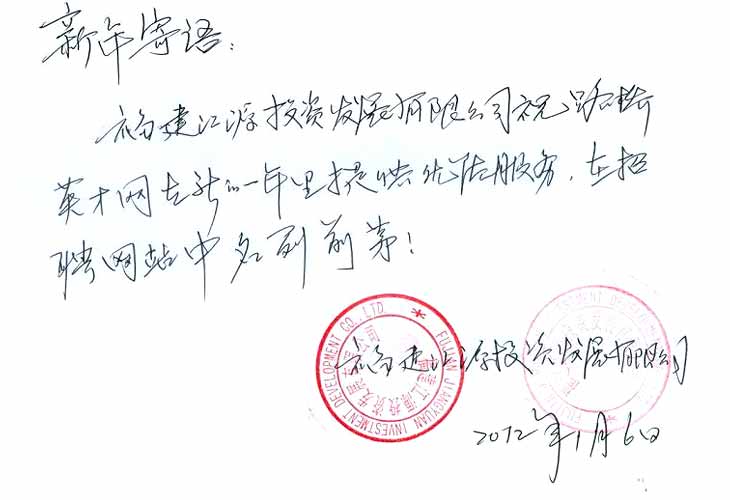 新年寄语：
福建江源投资发展有限公司祝路桥
英才网在新的一年里提供优质服务，在招
聘网站中名列前茅！
福建江源投资发展有限公司
2012年1月6日
FUJIAN JIANGYUAN INVESTMENT DEVELOPMENT CO., LTD.
福建江源投资发展有限公司